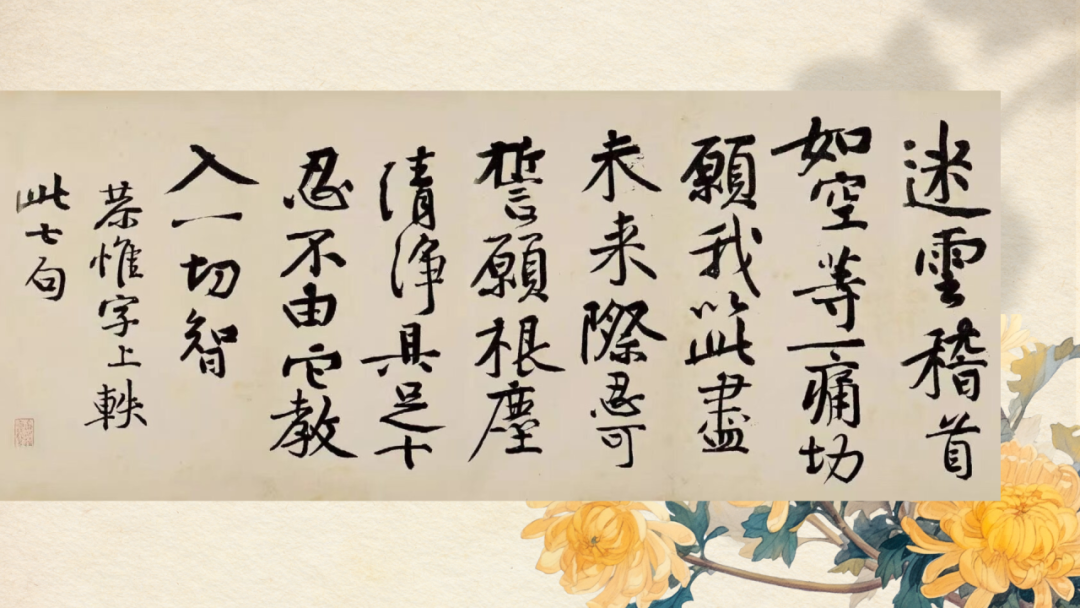 迷雲稽首
如空等一痛切
願我以此盡
未来際忍可
誓願根塵
清浄具足十
忍不由它教
入一切智
恭惟字上軼
此七句